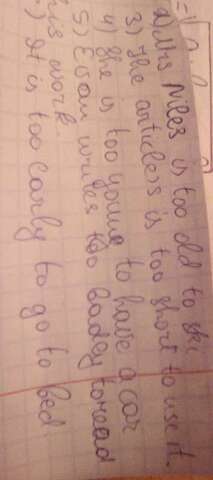 2) Mrs Niles is too old to ski
3) The articless is too short to use it.
4) She is too young to have a car
5) Esam writes too badey toread
his work.
) It is too early to go to bed